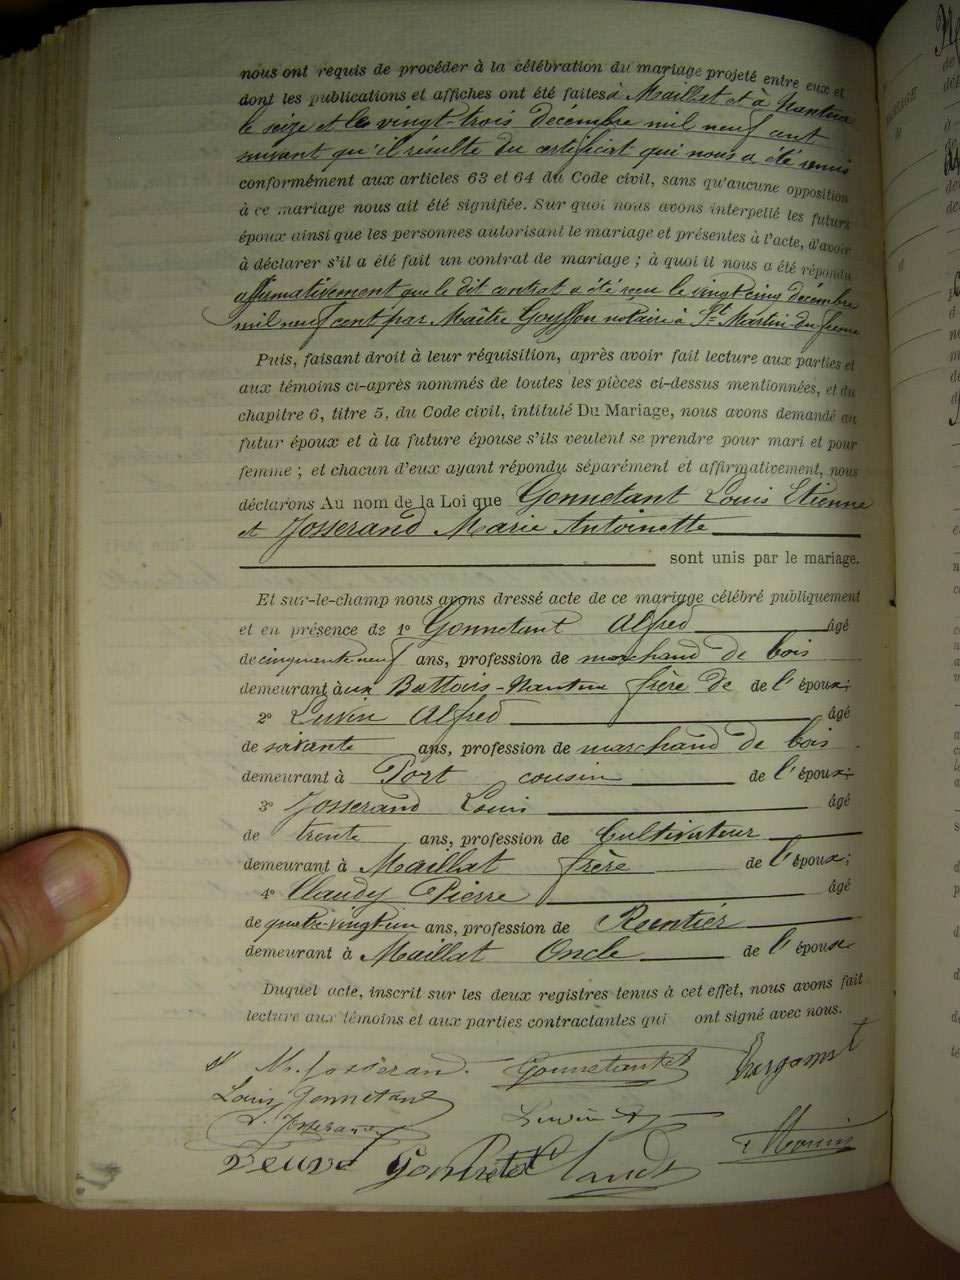 nous ont requis de procéder à la célébration du mariage projeté entre eux et
dont les publications et affiches ont été faites à Maillat et à Nantua
le seize et le vingt-trois décembre mil neuf cent
suivant qu'il résulte du certificat qui nous a été remis
conformément aux articles 63 et 64 du Code civil, sans qu'aucune opposition
à ce mariage nous ait été signifiée. Sur quoi nous avons interpellé les futurs
époux ainsi que les personnes autorisant le mariage et présentes à l'acte, d'avoir
à déclarer s'il a été fait un contrat de mariage ; à quoi il nous a été répondu
affirmativement que le dit contrat a été reçu le vingt cinq décembre
mil neuf cent par Maître Goyffon notaire à St Martin du fresne
Puis, faisant droit à leur réquisition, après avoir fait lecture aux parties et
aux témoins ci-après nommés de toutes les pièces ci-dessus mentionnées, et du
chapitre 6, titre 5, du Code civil, intitulé Du Mariage, nous avons demandé au
futur époux et à la future épouse s'ils veulent se prendre pour mari et pour
femme ; et chacun d'eux ayant répondu séparément et affirmativement, nous
déclarons Au nom de la Loi que Gonnetant Louis Etienne
et Josserand Marie Antoinette
sont unis par le mariage.
Et sur-le-champ nous avons dressé acte de ce mariage célébré publiquement
et en présence de 1° Gonnetant Alfred âgé
de cinquante neuf ans, profession de marchand de bois
demeurant à aux Battoirs-Nantua frère de de l'époux;
2° Luvin Alfred âgé
de soixante ans, profession de marchand de bois
demeurant à Port cousin de l'époux;
3° Josserand Louis âgé
de trente ans, profession de Cultivateur
demeurant à Maillat frère de l'époux;
4° Claudy Pierre âgé
de quatre-vingt-un ans, profession de Rentier
demeurant à Maillat Oncle de l'épouse
Duquel acte, inscrit sur les deux registres tenus à cet effet, nous avons fait
lecture aux témoins et aux parties contractantes qui ont signé avec nous.
M. Josserand. Gonnetant
Louis Gonnetant
L. Josserand Luvin A
veuve Gonnetant Claudy